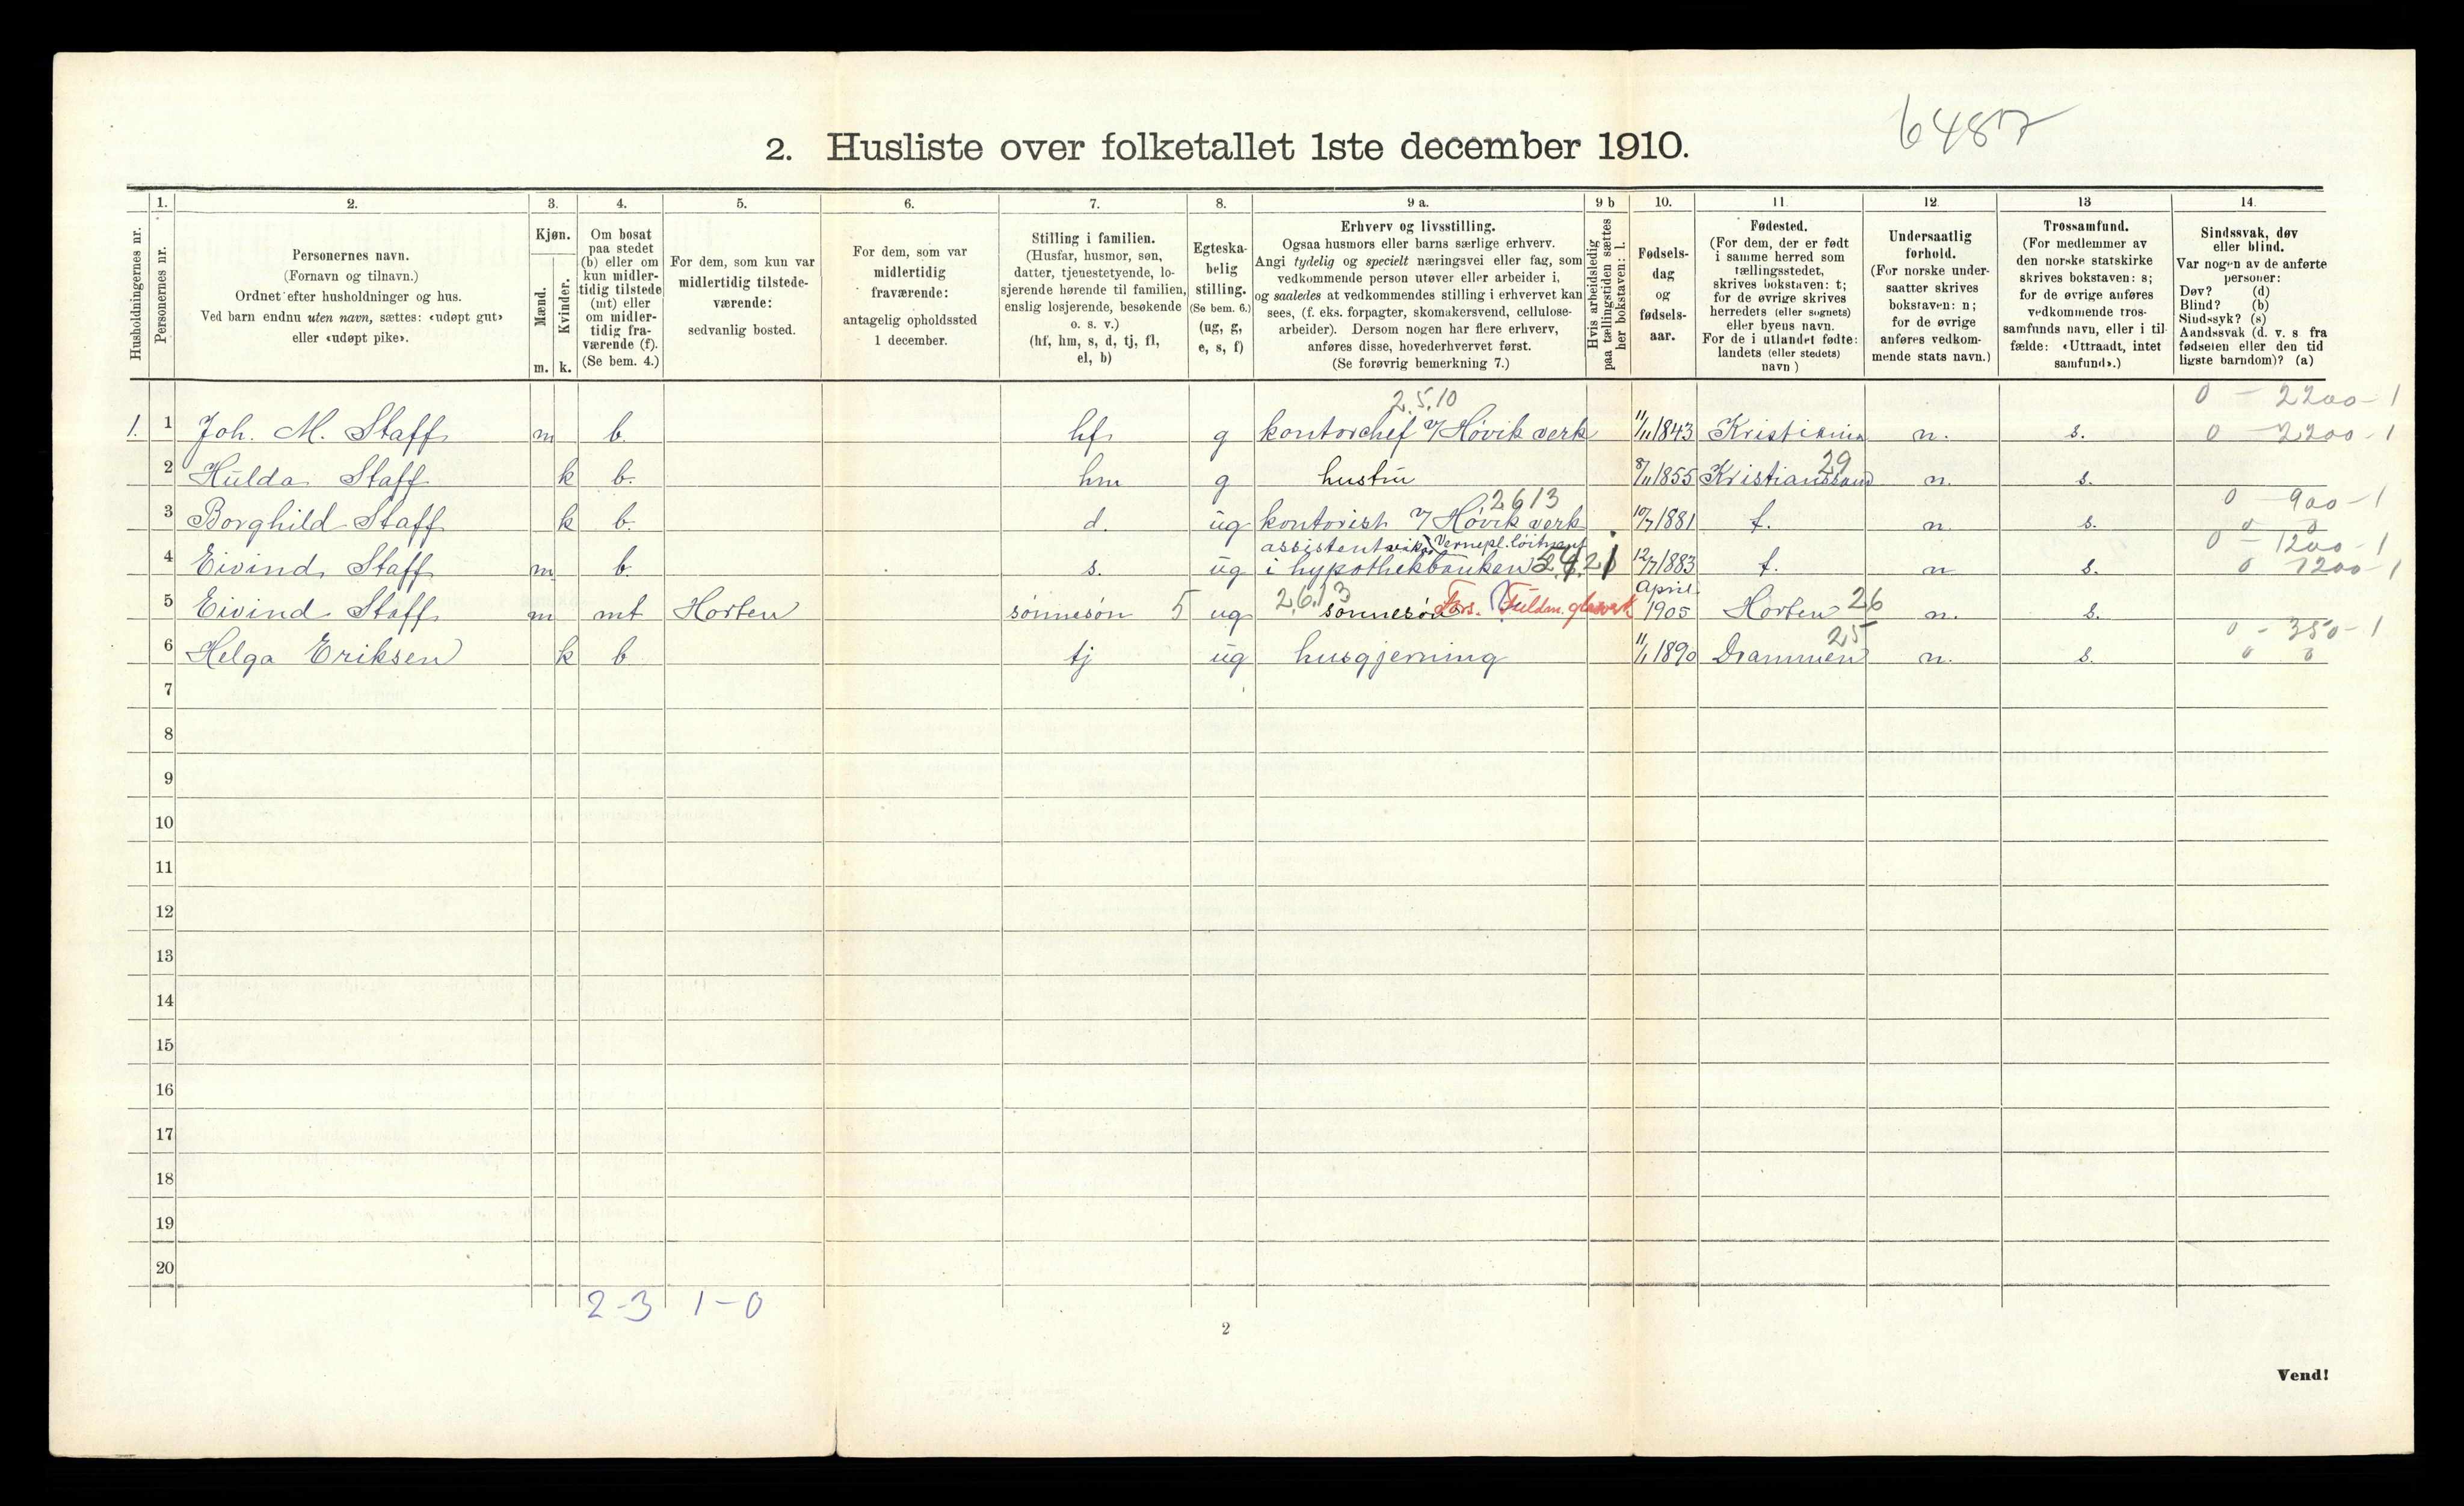 6487
2. Husliste over folketallet 1ste december 1910.
Husholdningernes nr.
1.
Personernes nr.
2.
Personernes navn.
(Fornavn og tilnavn.)
Ordnet efter husholdninger og hus.
Ved barn endnu uten navn, sættes: «udøpt gut»
eller «udøpt pike».
3.
Kjøn.
Mænd.
Kvinder.
m. k.
4.
Om bosat
paa stedet
(b) eller om
kun midler-
tidig tilstede
(mt) eller
om midler-
tidig fra-
værende (f).
(Se bem. 4.)
5.
For dem, som kun var
midlertidig tilstede-
værende:
sedvanlig bosted.
6.
For dem, som var
midlertidig
fraværende:
antagelig opholdssted
1 december.
7.
Stilling i familien.
(Husfar, husmor, søn,
datter, tjenestetyende, lo-
sjerende hørende til familien,
enslig losjerende, besøkende
o. s. v.)
(hf, hm, s, d, tj, fl,
el, b)
8.
Egteska-
belig
stilling.
(Se bem. 6.)
(ug, g,
e, s, f)
9 a.
Erhverv og livsstilling.
Ogsaa husmors eller barns særlige erhverv.
Angi tydelig og specielt næringsvei eller fag, som
vedkommende person utøver eller arbeider i,
og saaledes at vedkommendes stilling i erhvervet kan
sees, (f. eks. forpagter, skomakersvend, cellulose-
arbeider). Dersom nogen har flere erhverv,
anføres disse, hovederhvervet først.
(Se forøvrig bemerkning 7.)
9 b
Hvis arbeidsledig
paa tællingstiden sættes
her bokstaven: l.
10.
Fødsels-
dag
og
fødsels-
aar.
11.
Fødested.
(For dem, der er født
i samme herred som
tællingsstedet,
skrives bokstaven: t;
for de øvrige skrives
herredets (eller sognets)
eller byens navn.
For de i utlandet fødte:
landets (eller stedets)
navn )
12.
Undersaatlig
forhold.
(For norske under-
saatter skrives
bokstaven: n;
for de øvrige
anføres vedkom-
mende stats navn.)
13
Trossamfund.
(For medlemmer av
den norske statskirke
skrives bokstaven: s;
for de øvrige anføres
vedkommende tros-
samfunds navn, eller i til-
fælde: «Uttraadt, intet
samfund».)
14.
Sindssvak, døv
eller blind.
Var nogen av de anførte
personer:
Døv? (d)
Blind? (b)
Sindssyk? (s)
Aandssvak (d. v. s. fra
fødselen eller den tid
ligste barndom)? (a)
2.5.10 0 - 2200 - 1
1. 1 Joh. M. Staff m b. hf g kontorchef v/ Høvik verk 11/11 1843 Kristiania n. s. 0 - 2200 - 1
29
2 Hulda Staff k b. hm g hustru 8/11 1855 Kristianssand n. s.
2613 0 900 - 1
3 Borghild Staff k b. d. ug kontorist v/ Høvik verk 10/7 1881 t. n. s. 0 0
assistent Vernepl. løitnant 0 - 1200 - 1
4 Eivind Staff m b. s. ug i hypothekbanken 12/7 1883 t. n s. 0 1200 - 1
2.6.13 April 26
5 Eivind Staff m mt Horten sønnesøn 5 ug sønnesøn Fars. Fuldm. glasverk 1905 Horten n. s.
25 0 - 350 - 1
6 Helga Eriksen k b tj ug husgjerning 11/1 1890 Drammen n. s. 0 0
7
8
9
10
11
12
13
14
15
16
17
18
19
20
2-3 1-0
2
Vend!